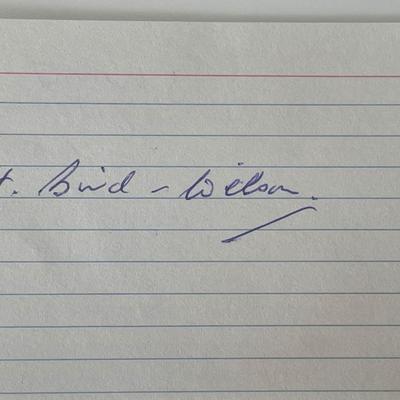 . Bird - Wilson.